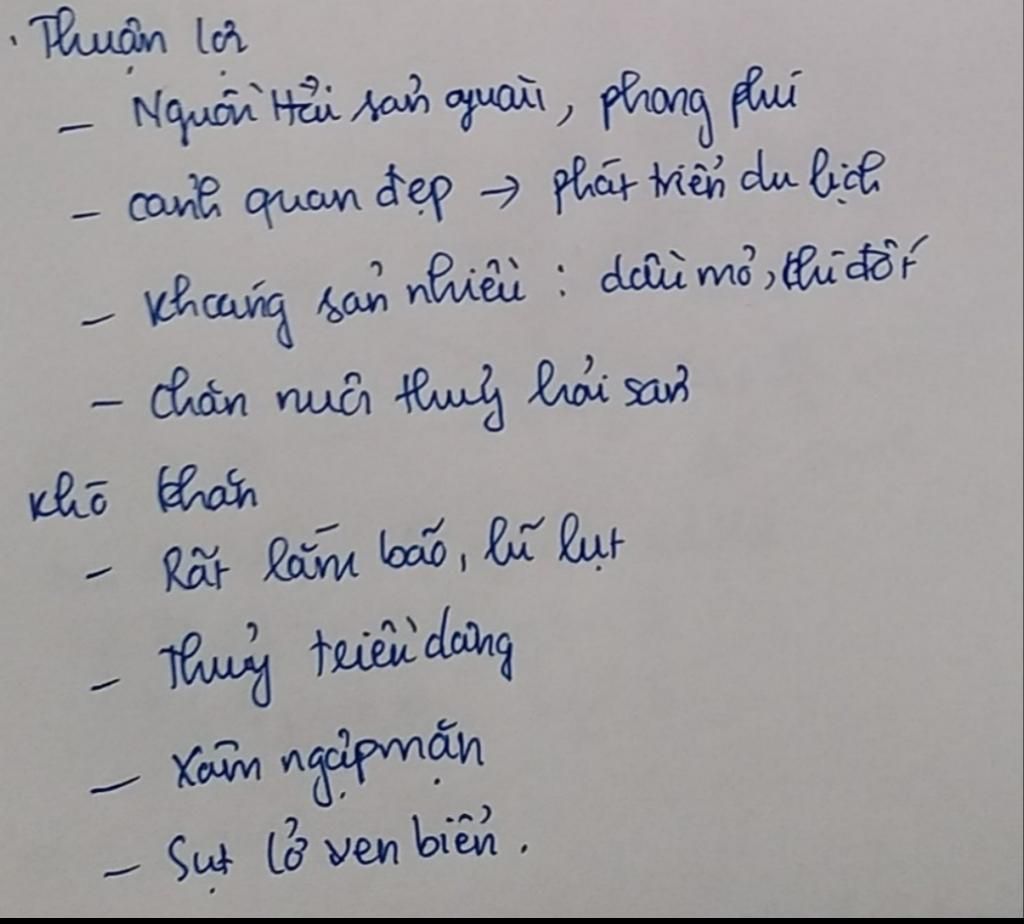 . Thuận lợi
- Nguồn Hải sản quý, phong phú
- cảnh quan đẹp → phát triển du lịch
- Khoáng sản nhiều : dầu mỏ, khí đốt
- chăn nuôi thuỷ hải sản
Khó khăn
- Rất lắm bão, lũ lụt
- Thuỷ triều dâng
- Xâm ngập mặn
- Sụt lở ven biển.